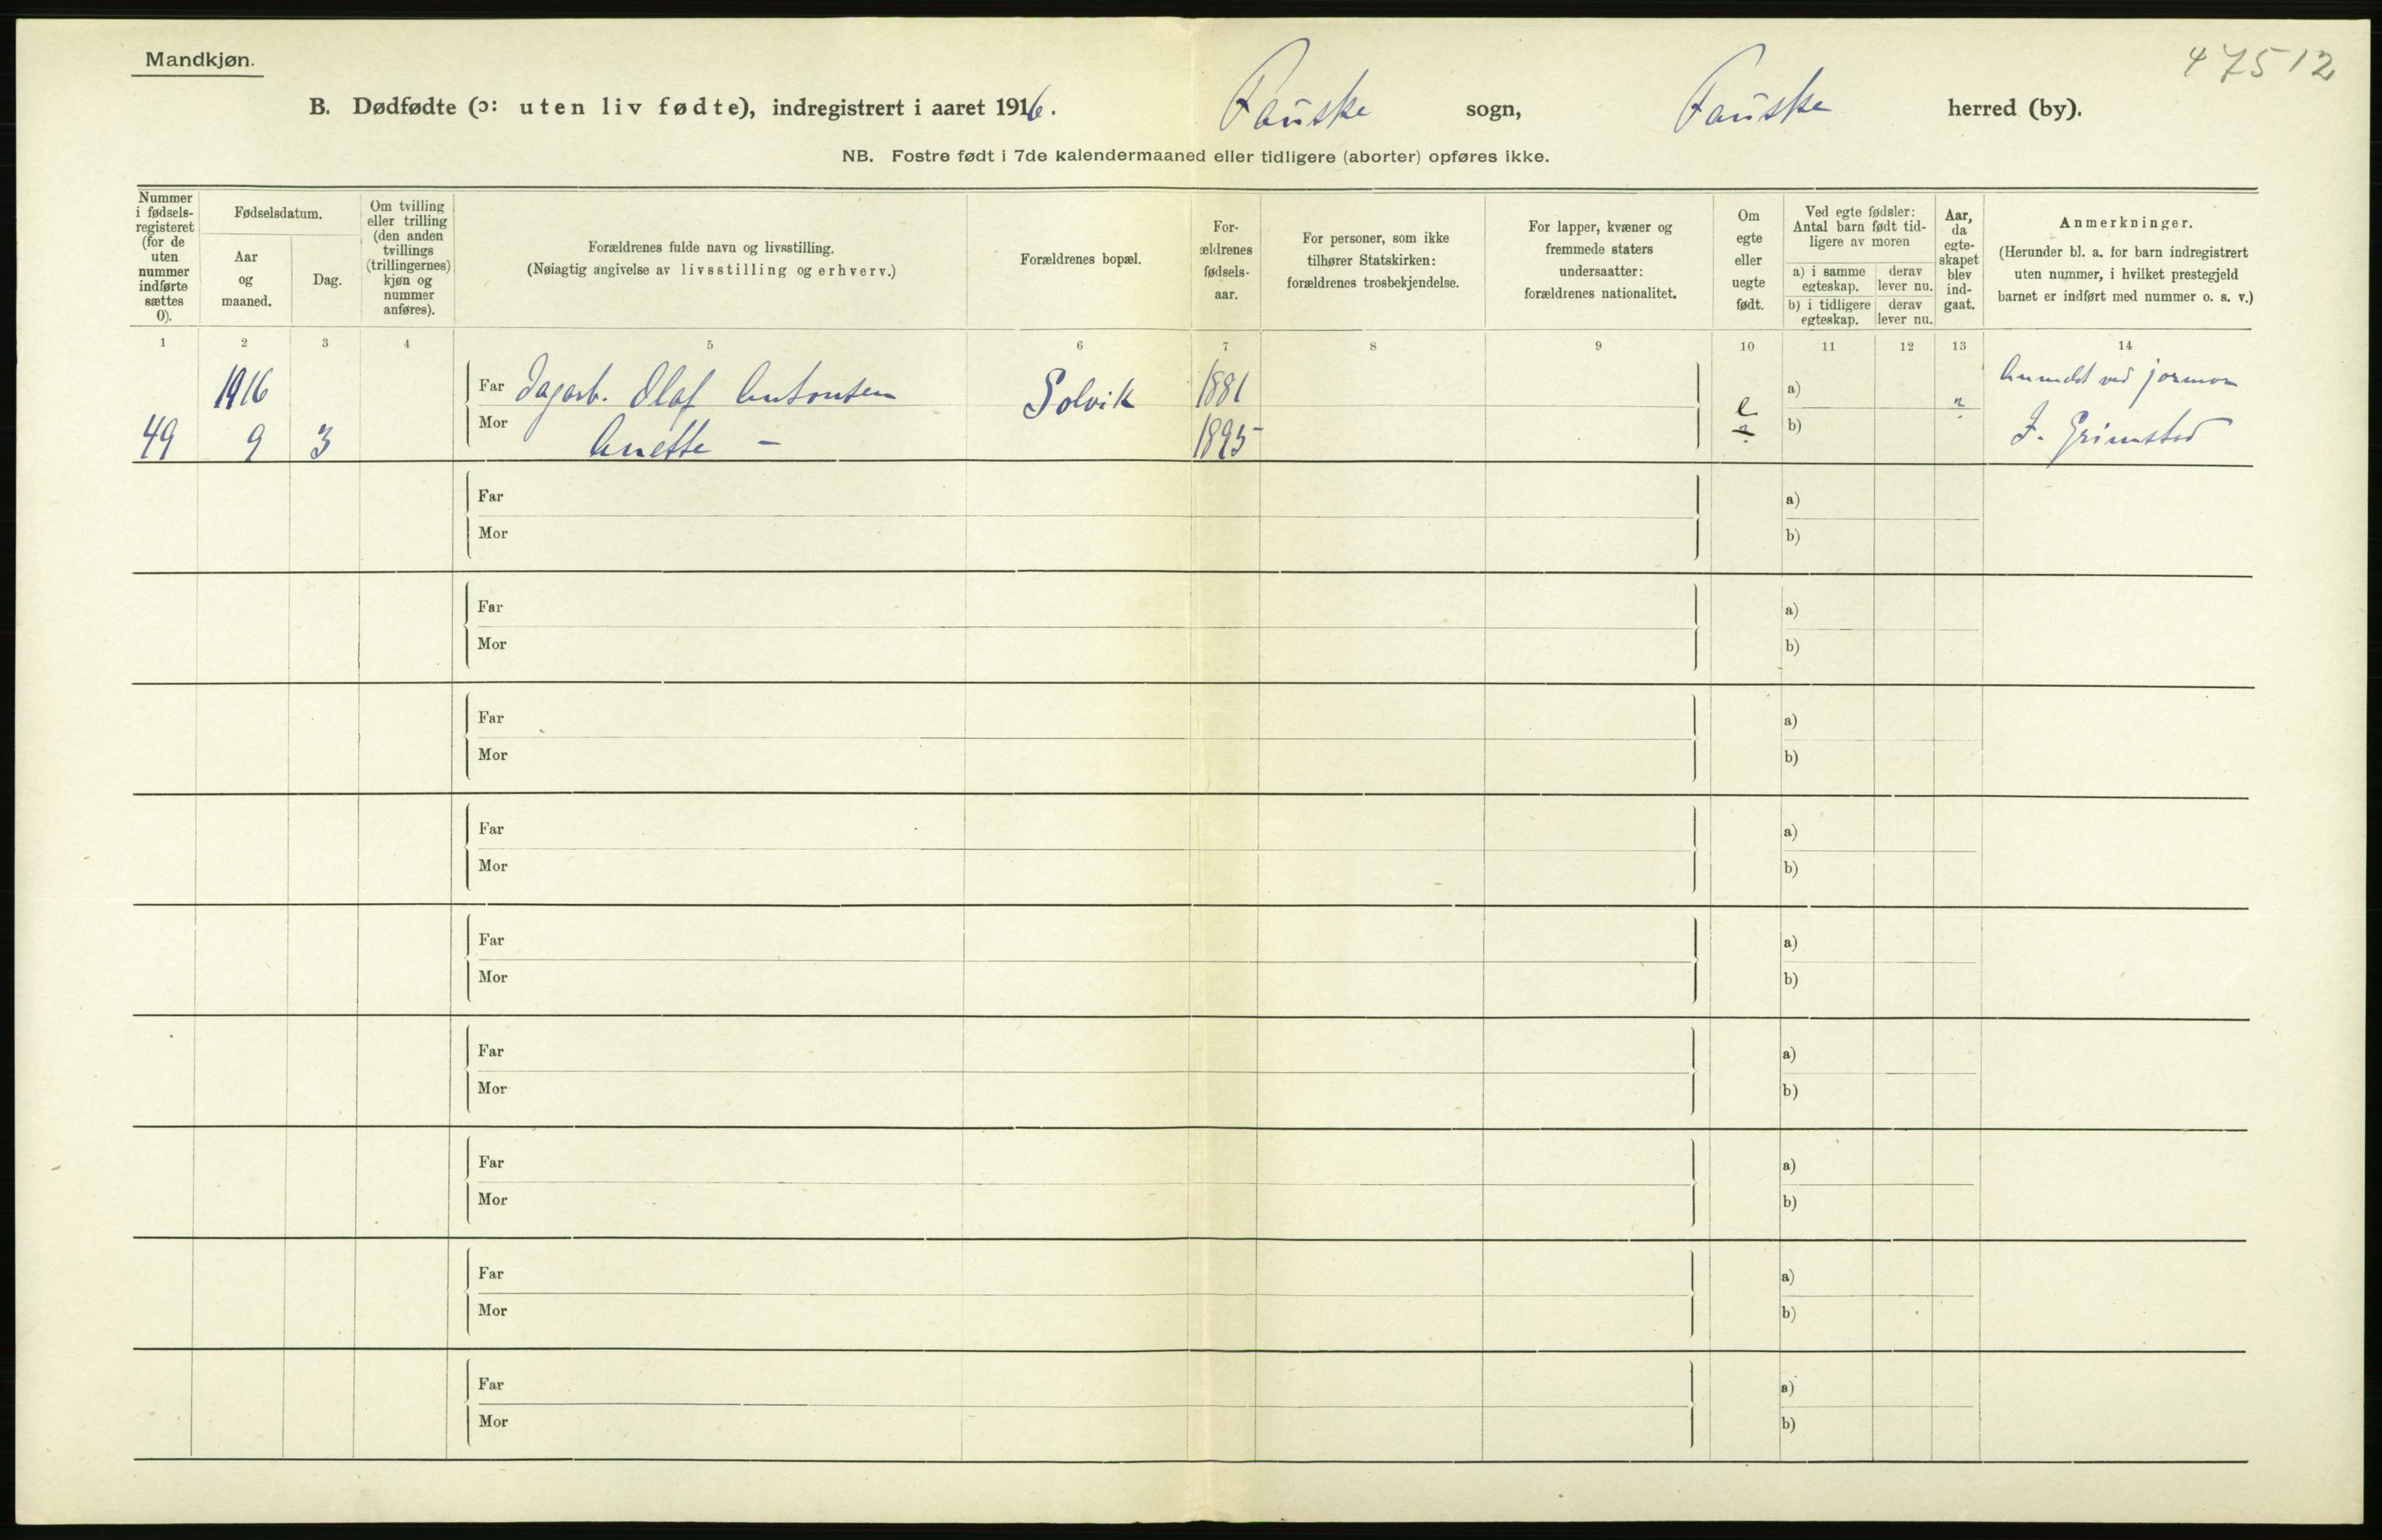 Mandkjøn.
47512
B. Dødfødte (ɔ: uten liv fødte), indregistrert i aaret 1916. Fauske sogn, Fauske herred (by).
NB. Fostre født i 7de kalendermaaned eller tidligere (aborter) opføres ikke.
Nummer i fødsels-registeret (for de uten nummer indførte sættes 0).
Fødselsdatum.
Aar og maaned.
Dag.
Om tvilling eller trilling (den anden tvillings (trillingernes) kjøn og nummer anføres).
Forældrenes fulde navn og livsstilling.
(Nøiagtig angivelse av livsstilling og erhverv.)
Forældrenes bopæl.
For-ældrenes fødsels-aar.
For personer, som ikke tilhører Statskirken: forældrenes trosbekjendelse.
For lapper, kvæner og fremmede staters undersaatter: forældrenes nationalitet.
Om egte eller uegte født.
Ved egte fødsler: Antal barn født tid-ligere av moren
a) i samme egteskap.
derav lever nu.
b) i tidligere egteskap.
derav lever nu.
Aar, da egte-skapet blev ind-gaat.
Anmerkninger.
(Herunder bl. a. for barn indregistrert uten nummer, i hvilket prestegjeld barnet er indført med nummer o. s. v.)
1 2 3 4 5 6 7 8 9 10 11 12 13 14
1916 Far Dagarb. Olaf Antonsen Solvik 1881 e a) " Anmeldt ved jormor
49 9 3 Mor Anette — 1895 ? b) J. Grimstad
Far a)
Mor b)
Far a)
Mor b)
Far a)
Mor b)
Far a)
Mor b)
Far a)
Mor b)
Far a)
Mor b)
Far a)
Mor b)
Far a)
Mor b)
Far a)
Mor b)